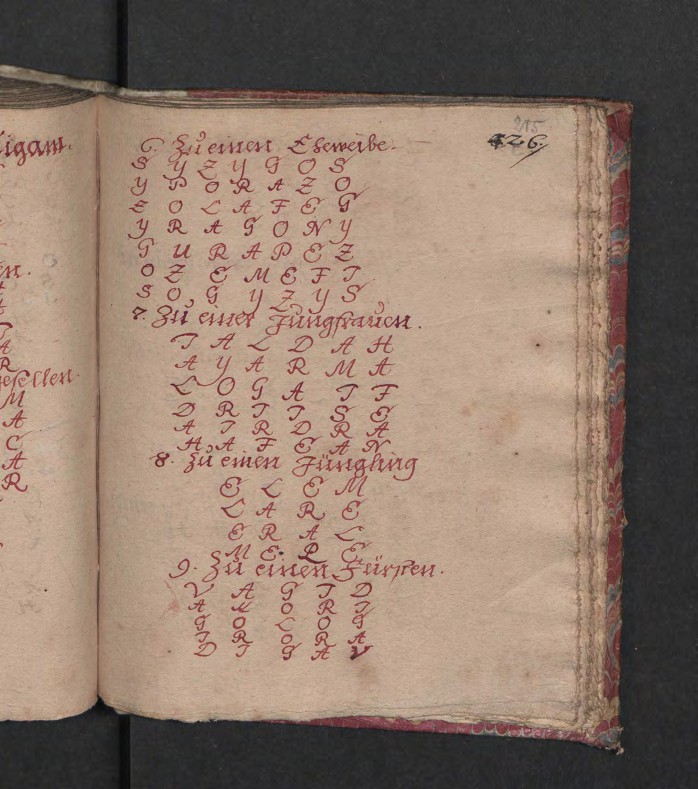 igam.
en.
esellen.
M
A
C
A
R
215.
426.
6. Zu einen Eheweibe.
S Y Z Y G O S
Y P O R A Z O
Z O L A F E G
Y R A G O N Y
G U R A P E Z
O Z E M E F T
S O G Y Z Y S
7. Zu einer Jungfrauen.
I A L D A H
A Y A R M A
L O G A I F
D R I I S E
A I R D R A
H A F E A N
8. Zu einen Jüngling
E L E M
L A R E
E R A L
M E R E
9. Zu einen Fürsten.
V A G I D
A M O R I
G O L O G
I R O R A
D I G A V